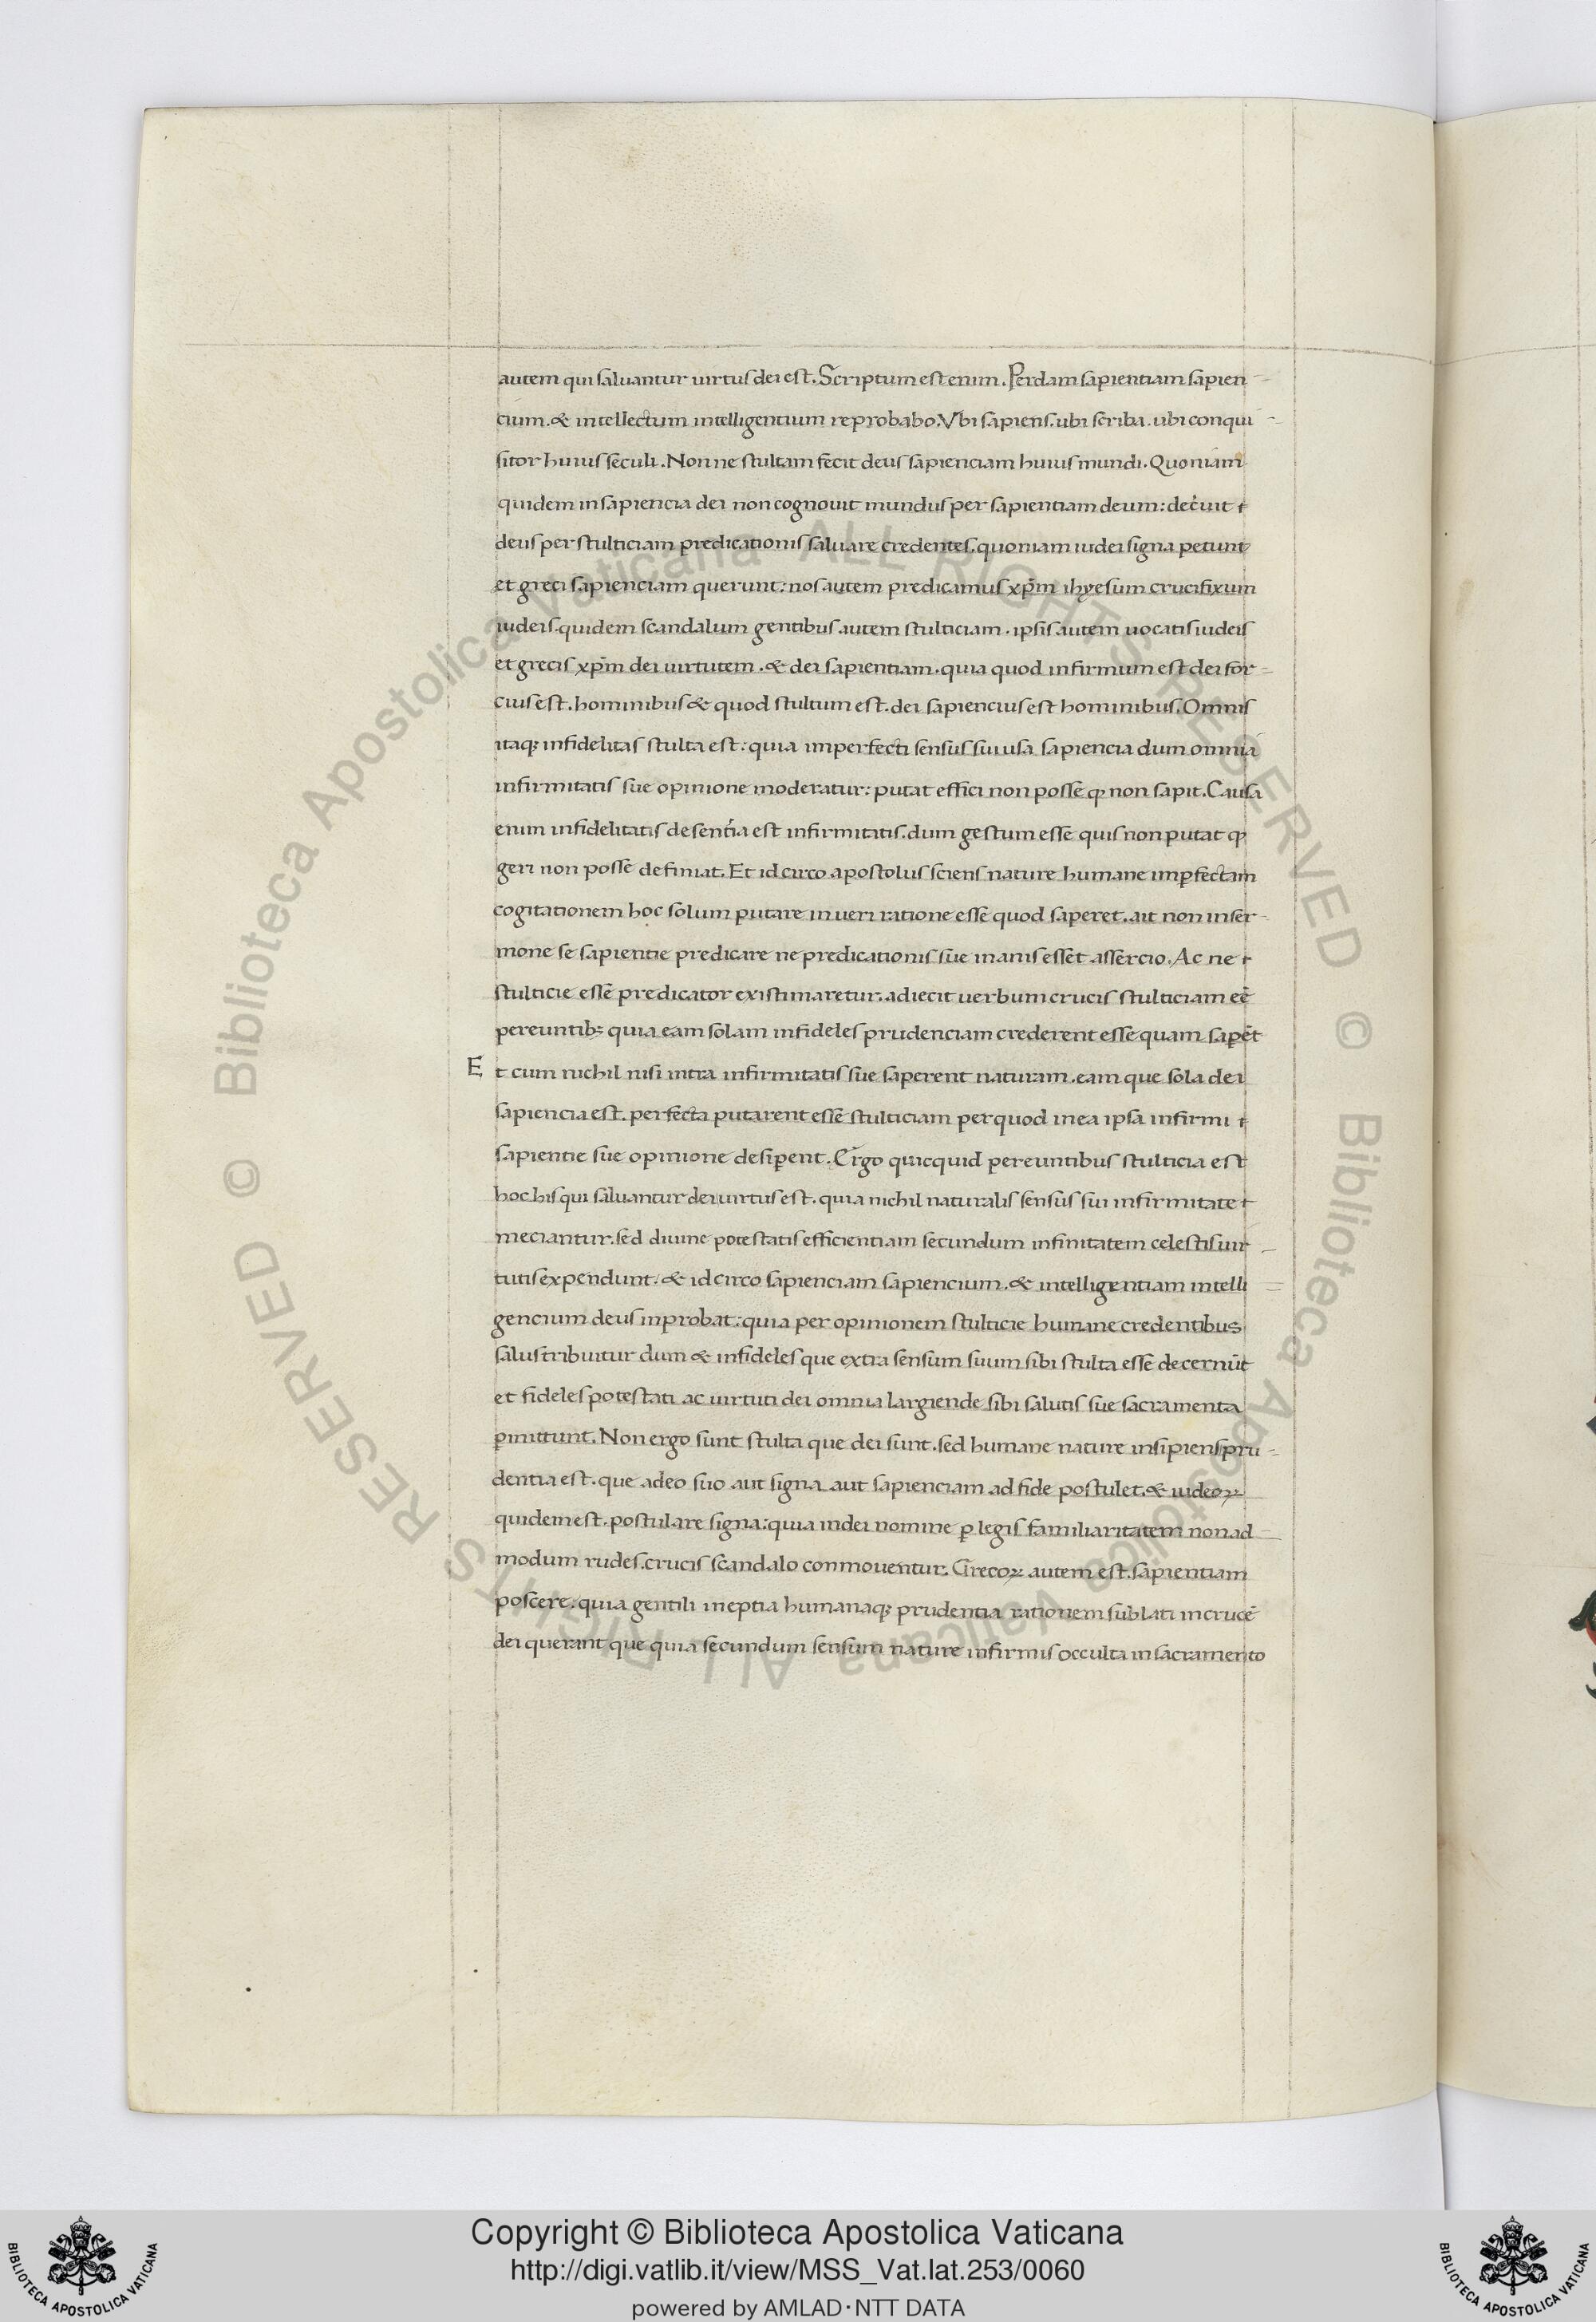 autem qui saluantur uirtus dei est. Scriptum est enim. Perdam sapientiam sapien-
cium. & intellectum intelligentium reprobabo. Vbi sapiens. ubi scriba. ubi conqui-
sitor huius seculi. Nonne stultam fecit deus sapienciam huius mundi. Quoniam
quidem in sapiencia dei non cognouit mundus per sapientiam deum: decuit
deus per stulticiam predicationis saluare credentes. quoniam iudei signa petunt
et greci sapienciam querunt: nos autem predicamus xp̄m ihyesum crucifixum
iudeis quidem scandalum gentibus autem stulticiam. ipsis autem uocatis iudeis
et grecis xp̄m dei uirtutem. & dei sapientiam. quia quod infirmum est dei for-
cius est. hominibus & quod stultum est. dei sapiencius est hominibus. Omnis
itaq; infidelitas stulta est: quia imperfecti sensus sui usa sapiencia dum omnia
infirmitatis sue opinione moderatur: putat effici non posse ꝙ non sapit. Causa
enim infidelitatis de sentẽia est infirmitatis. dum gestum esse quis non putat ꝙ
geri non posse definiat. Et idcirco apostolus sciens nature humane imꝑfectam
cogitationem hoc solum putare in ueri ratione esse quod saperet. ait non in ser-
mone se sapientie predicare ne predicationis sue inanis esset assercio. Ac ne
stulticie esse predicator existimaretur. adiecit uerbum crucis stulticiam eē
pereuntib; quia eam solam infideles prudenciam crederent esse quam saꝑēt
Et cum nichil nisi intra infirmitatis sue saperent naturam. eam que sola dei
sapiencia est. perfecta putarent esse stulticiam per quod in ea ipsa infirmi
sapientie sue opinione desiꝑent. Ergo quicquid pereuntibus stulticia est
hoc his qui saluantur dei uirtus est. quia nichil naturalis sensus sui infirmitate
meciantur. sed diuine potestatis efficientiam secundum infinitatem celestis uir-
tutis expendunt: & idcirco sapienciam sapiencium. & intelligentiam intelli-
gencium deus inprobat: quia per opinionem stulticie humane credentibus
salus tribuitur dum & infideles que extra sensum suum sibi stulta esse decernūt
et fideles potestati ac uirtuti dei omnia largiende sibi salutis sue sacramenta
ꝑmittunt. Non ergo sunt stulta que dei sunt. sed humane nature insipiens pru-
dentia est. que a deo suo aut signa aut sapienciam ad fide postulet. & iudeoꝝ
quidem est. postulare signa: quia in dei nomine ꝑ legis familiaritatem non ad
modum rudes. crucis scandalo conmouentur. Grecoꝝ autem est. sapientiam
poscere: quia gentili ineptia humanaq; prudentia rationem sublati in crucē
dei querant que quia secundum sensum nature infirmis occulta in sacramento
BIBLIOTECA APOSTOLICA VATICANA
Copyright © Biblioteca Apostolica Vaticana
http://digi.vatlib.it/view/MSS_Vat.lat.253/0060
powered by AMLAD·NTT DATA
BIBLIOTECA APOSTOLICA VATICANA
© Biblioteca Apostolica Vaticana ALL RIGHTS RESERVED
© Biblioteca Apostolica Vaticana ALL RIGHTS RESERVED